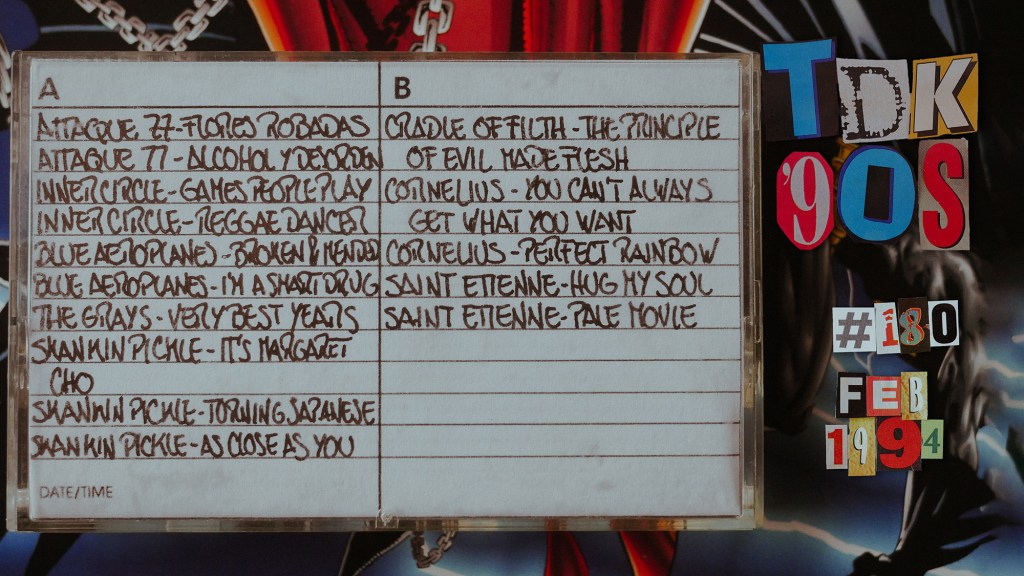 A
ATTACQUE 77-FLORES ROBADAS
ATTAQUE 77 - ALCOHOL Y DESORDEN
INNER CIRCLE - GAMES PEOPLE PLAY
INNER CIRCLE - REGGAE DANCER
BLUE AEROPLANES - BROKEN & MENDED
BLUE AEROPLANES - I'M A SMART DRUG
THE GRAYS - VERY BEST YEARS
SKANKIN PICKLE - IT'S MARGARET
CHO
SKANKIN PICKLE - TURNING JAPANESE
SKANKIN PICKLE - AS CLOSE AS YOU
DATE/TIME
B
CRADLE OF FILTH - THE PRINCIPLE
OF EVIL MADE FLESH
CORNELIUS - YOU CAN'T ALWAYS
GET WHAT YOU WANT
CORNELIUS - PERFECT RAINBOW
SAINT ETIENNE - HUG MY SOUL
SAINT ETIENNE - PALE MOVIE
TDK
'90S
#180
FEB
1994